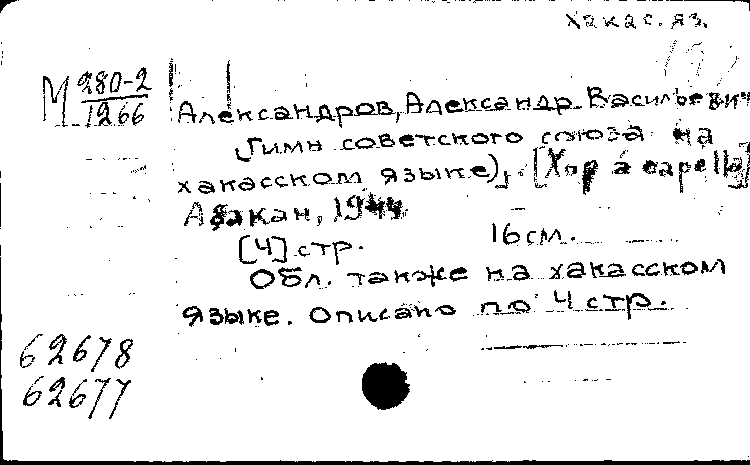 Хакас. яз.
М 280-2
1266
Александров, Александр Васильевич
Гимн советского союза на
хакасском языке), [Хор a capella]
Абакан, 1944
[4] стр. 16 см.
Обл. также на хакасском
языке. Описано по 4 стр.
62678
62677